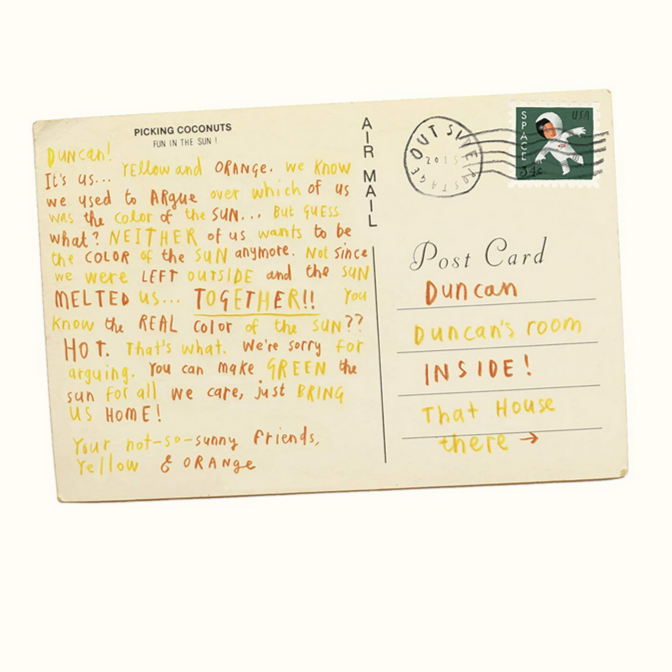 PICKING COCONUTS
FUN IN THE SUN !
DUNCAN!
It's us... Yellow and ORANGE. we KNOW
we used to ARGUE over which of us
was the color of the SUN... But guess
what? NEITHER of us wants to be
the COLOR of the SUN anymore. Not since
we were LEFT OUTSIDE and the SUN
MELTED us... TOGETHER!! You
know the REAL color of the SUN??
HOT. That's what. We're sorry for
arguing. You can make GREEN the
sun for all we care, just BRING
US HOME!
Your not-so-sunny friends,
Yellow & ORANGE
AIR MAIL
OUT SIDE
2015
POSTAGE
SPACE
USA
Post Card
Duncan
Duncan's room
INSIDE!
That House
there →